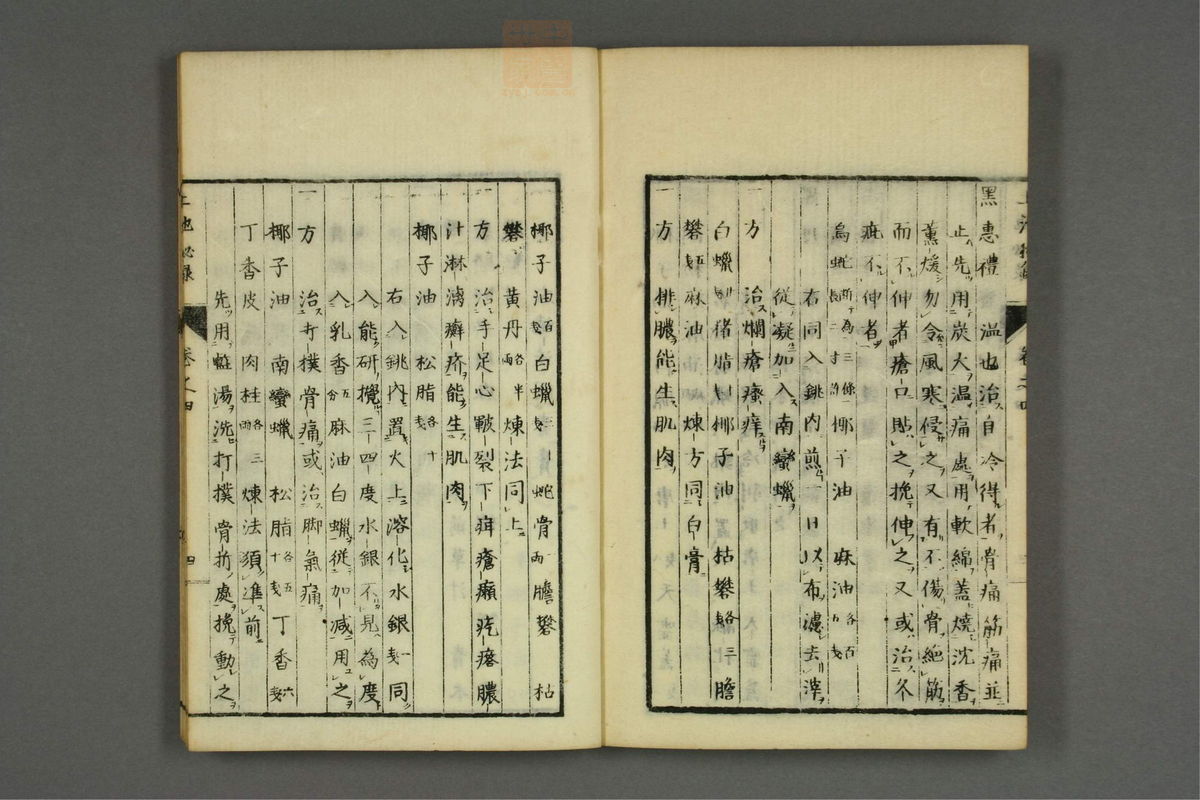 黑惠禮溫也治自冷得者骨痛筋痛並
止先用炭火溫痛處用軟綿蓋燒沈香
薰煖勿令風寒侵之又有不傷骨絕筋
而不伸者瘡口貼之挽伸之又或治久
疵不伸者
烏蛇 椰子油 麻油各百匁
右同入銚內煎一日以布濾去滓
從凝加入南蠻蠟
一方治爛瘡瘙痒
白蠟 猪脂 椰子油 枯礬各三 膽
礬 麻油 煉方同白膏
一方排膿能生肌肉
椰子油 白蠟 蛇骨 膽礬 枯
礬 黃丹 煉法同上
一方治手足心皸裂下疳瘡癩疙瘩膿
汁淋漓癬疥能生肌肉
椰子油 松脂各十匁
右入銚內置火上溶化水銀一匁同
入能研攪三四度水銀不見為度
入乳香五分麻油白蠟從加減用之
一方治打撲骨痛或治脚氣痛
椰子油 南蠻蠟 松脂各五十匁 丁香六匁
丁香皮 肉桂各三兩 煉法須準前
先用䀋湯洗打撲骨折處挽動之
卷之四
四